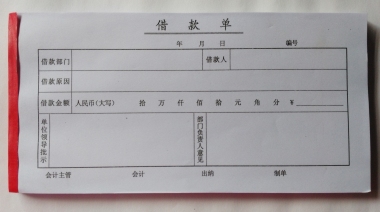 借款单
年 月 日 编号
借款部门 借款人
借款原因
借款金额 人民币(大写) 拾 万 仟 佰 拾 元 角 分 ¥
单位领导批示 部门负责人意见
会计主管 会计 出纳 制单